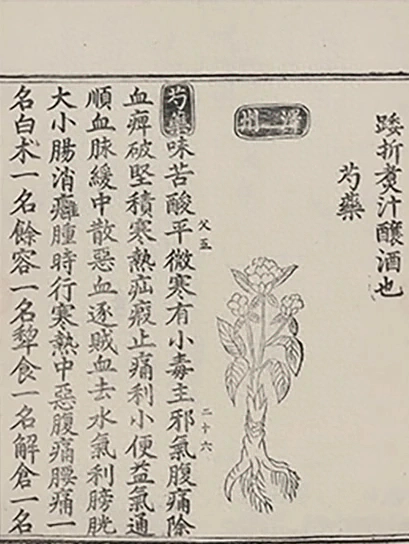 踒折煑汁釀酒也
芍藥
澤州
芍藥味苦酸平微寒有小毒主邪氣腹痛除
父五
二十六
血痺破堅積寒熱疝瘕止痛利小便益氣通
順血脉緩中散惡血逐賊血去水氣利膀胱
大小腸消癰腫時行寒熱中惡腹痛腰痛一
名白术一名餘容一名犂食一名解倉一名